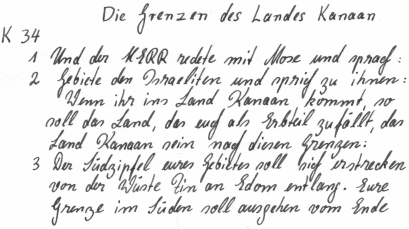 Die Grenzen des Landes Kanaan
K 34
1 Und der HERR redete mit Mose und sprach:
2 Gebiete den Israeliten und sprich zu ihnen:
Wenn ihr ins Land Kanaan kommt, so
soll das Land, das euch als Erbteil zufällt, das
Land Kanaan sein nach diesen Grenzen:
3 Der Südzipfel eures Gebietes soll sich erstrecken
von der Wüste Zin an Edom entlang. Eure
Grenze im Süden soll ausgehen vom Ende